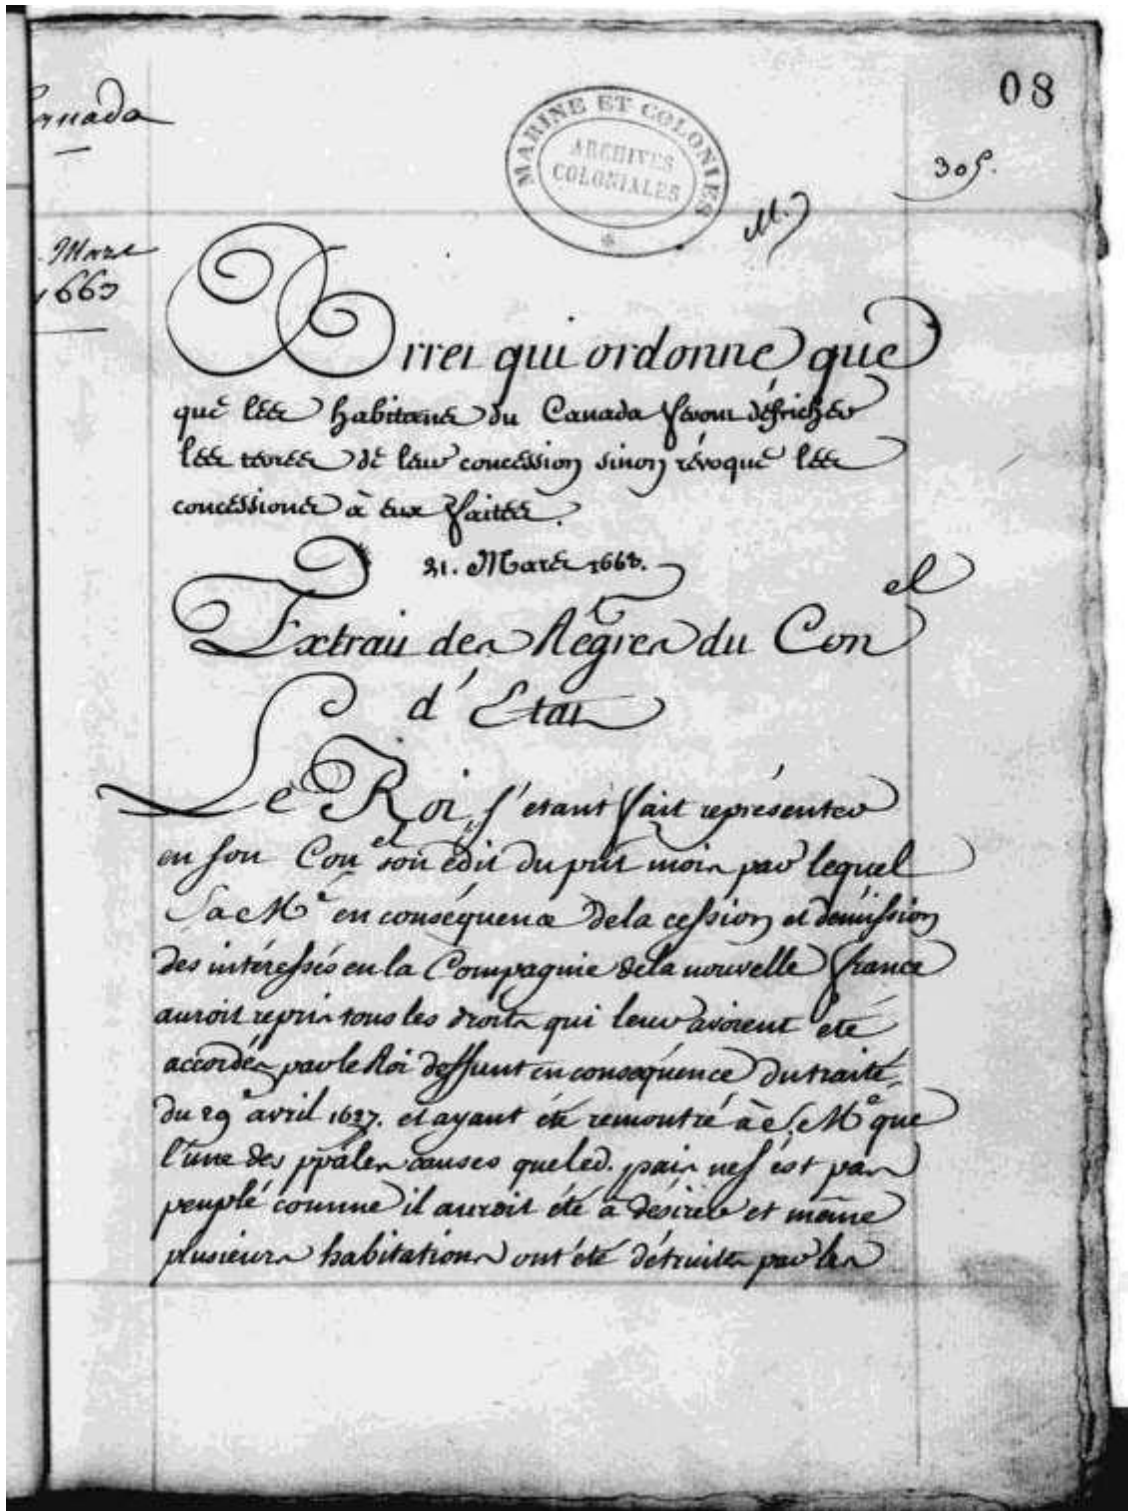 08
Canada
MARINE ET COLONIES
ARCHIVES
COLONIALES
305.
M.
Mars
1663
Arret qui ordonne que
que les habitans du Canada feront défricher
les terres de leur concession sinon révoque les
concessions à eux faites.
21. Mars 1663.
Extrait des Regres du Con el
d'Etat
Le Roi s'etant fait représenter
en son Con el son édit du prnt mois par lequel
Sa Mé en conséquence de la cession et démission
des intéressés en la Compagnie de la nouvelle france
auroit repris tous les droits qui leur avoient été
accordés par le Roi deffunt en conséquence du traité
du 29e avril 1627. et ayant été remontré à S. Mé que
l'une des ppales causes que led. pais ne s'est pas
peuplé comme il auroit été à désirer et même
plusieurs habitations ont été détruites par les